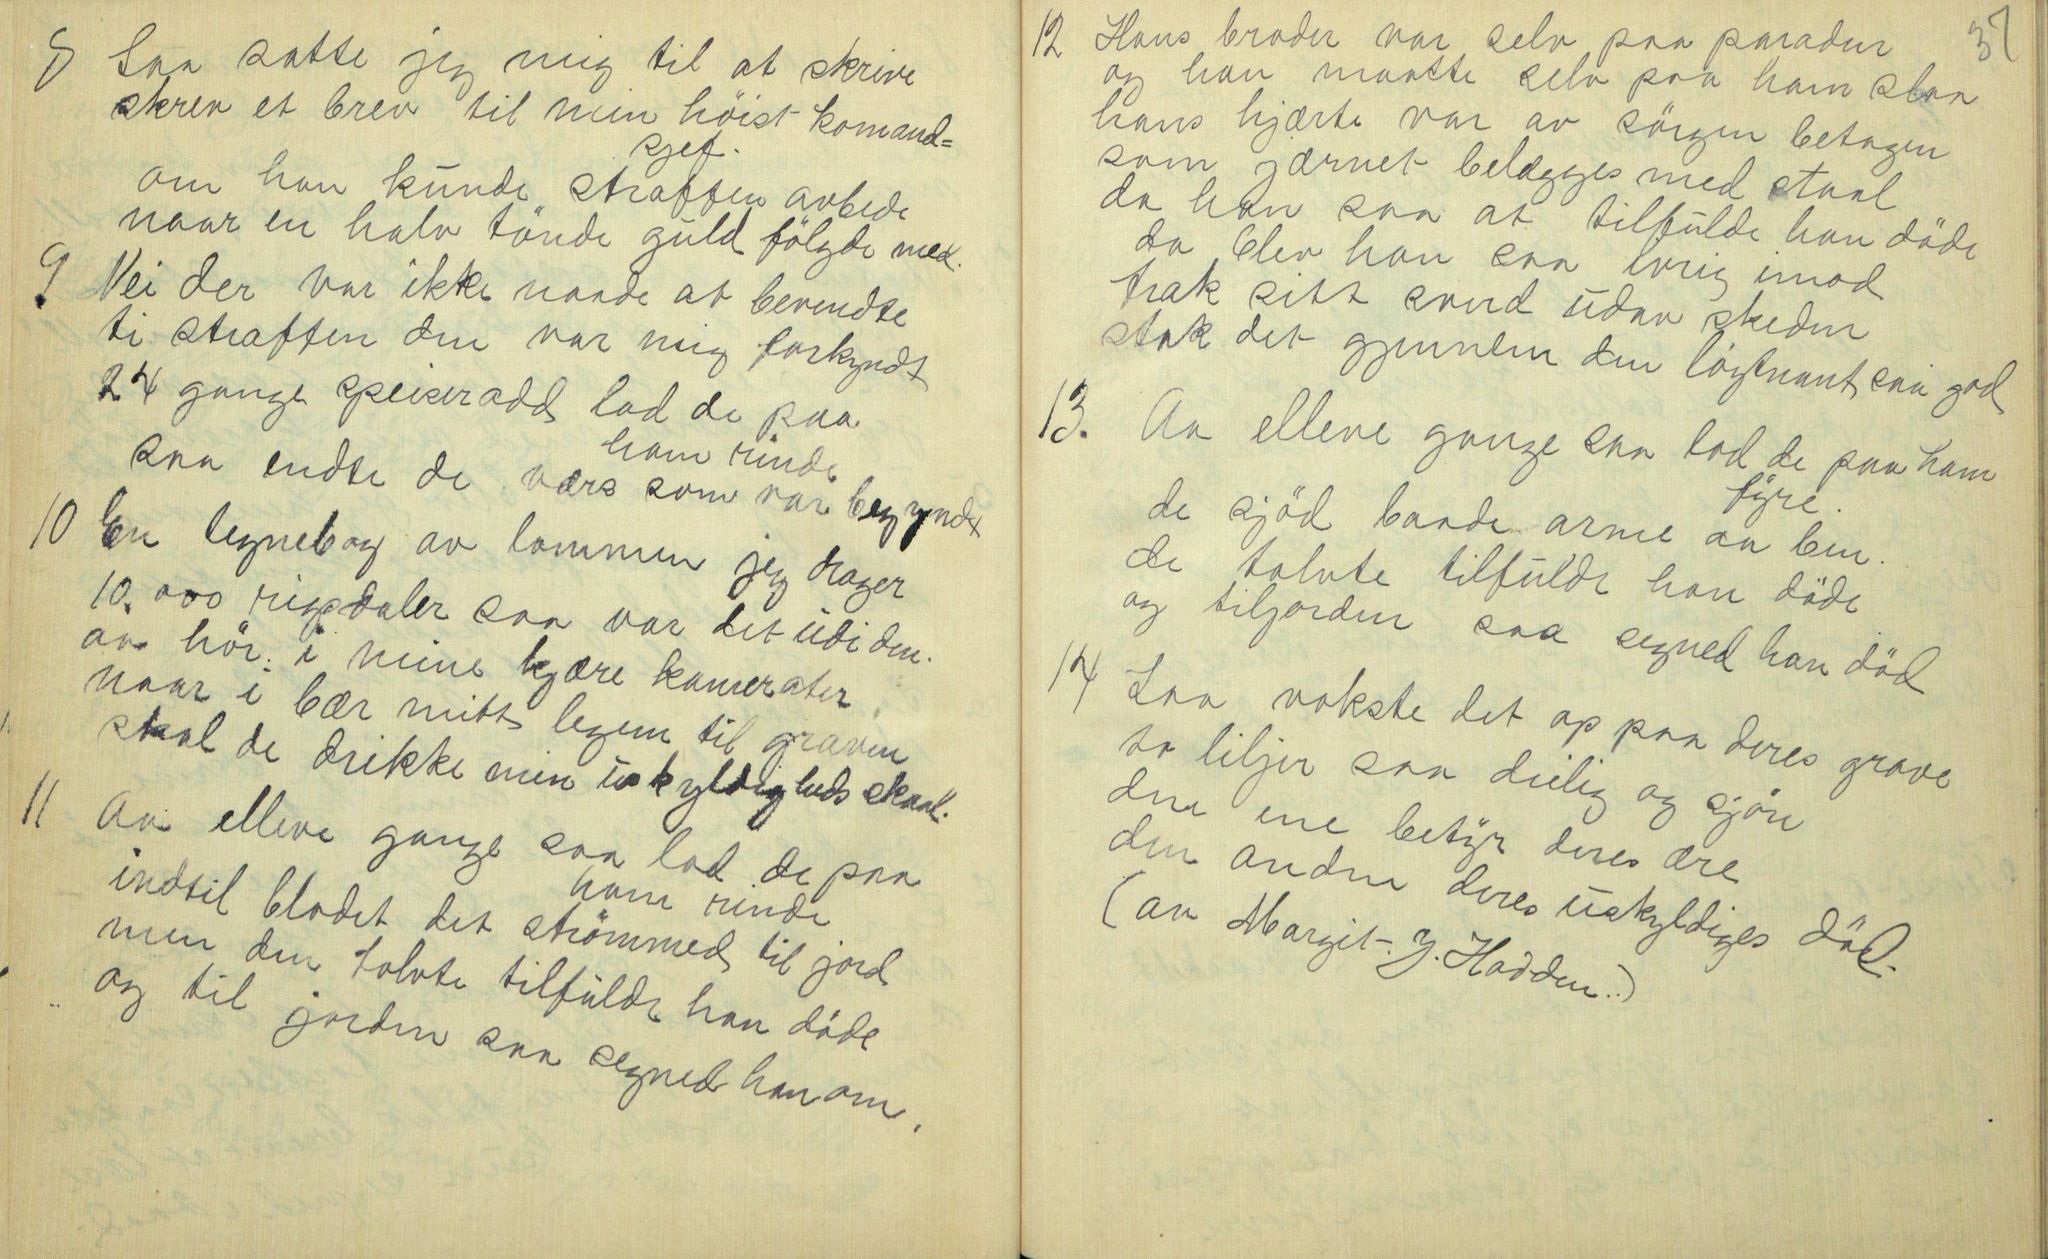 8 Saa satte jeg mig til at skrive
skrev et brev til min höist komand=
sjef.
om han kunde straffen avbede
naar en halv tönde guld fölgde med.
9. Nei der var ikke naade at bevendte
ti straffen den var mig forkyndt
24 gange speiseradd lod de paa
ham rinde
saa endte de værs som var begyndt
10 En tegnebog av lommen jeg drager
10.000 rigsdaler saa var det udi den.
aa hör. i mine kjære kamerater
naar i bær mitt legem til graven
skal de drikke min uskyldigheds skaal.
11 Aa elleve gange saa lod de paa
ham rinde
indtil blodet det strömmed til jord
men den tolvte tilfulde han döde
og til jorden saa segned han om.
37
12 Hans broder var selv paa paraden
og han maatte selv paa ham slaa
hans hjærte var av sörgen betagen
som jærnet belægges med staal
da han saa at tilfulde han döde
da blev han saa ivrig imod
trak sitt sverd udav skeden
stak det gjennem den löytnant saa god
13. Aa elleve gange saa lod de paa ham
fyre.
de sjöd baade arme aa ben.
de tolvte tilfulde han döde
og tiljorden saa segned han död
14 Saa vokste det op paa deres grave
to liljer saa deilig og sjön
den ene betyr deres ære
den anden deres uskyldiges död.
(av Margit. Y. Hadden.)